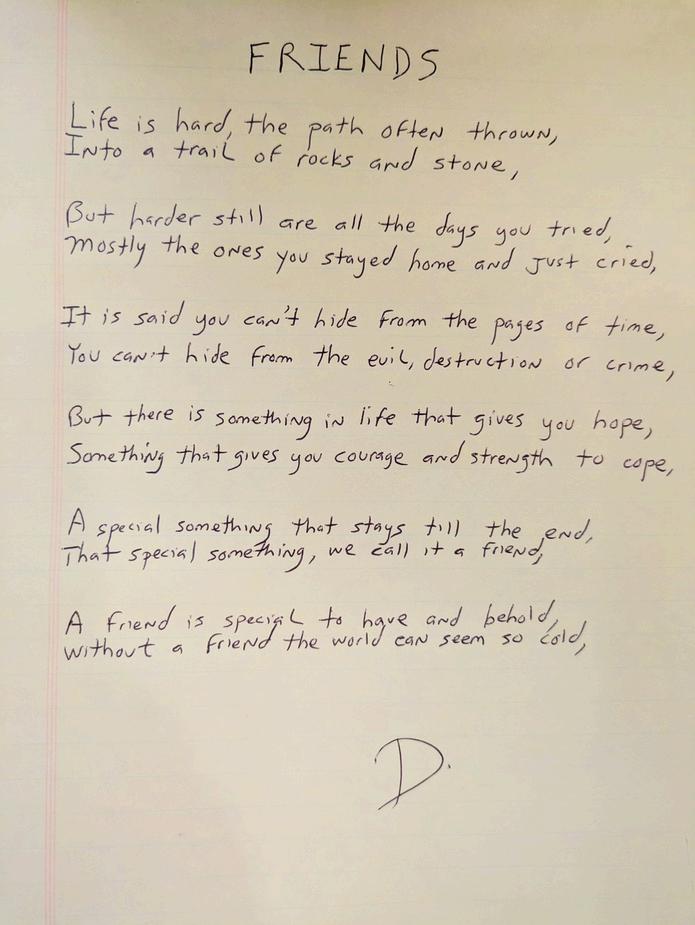 FRIENDS
Life is hard, the path often thrown,
Into a trail of rocks and stone,
But harder still are all the days you tried,
Mostly the ones you stayed home and just cried,
It is said you can't hide from the pages of time,
You can't hide from the evil, destruction or crime,
But there is something in life that gives you hope,
Something that gives you courage and strength to cope,
A special something that stays till the end,
That special something, we call it a friend,
A friend is special to have and behold,
Without a friend the world can seem so cold,
D.